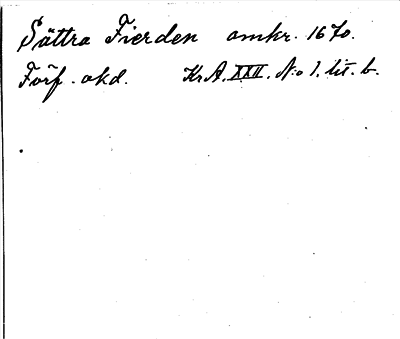 Sättra Fierden omkr. 1670.
Förf. okd. Kr.A. XXII. N:o 1. lit. b.